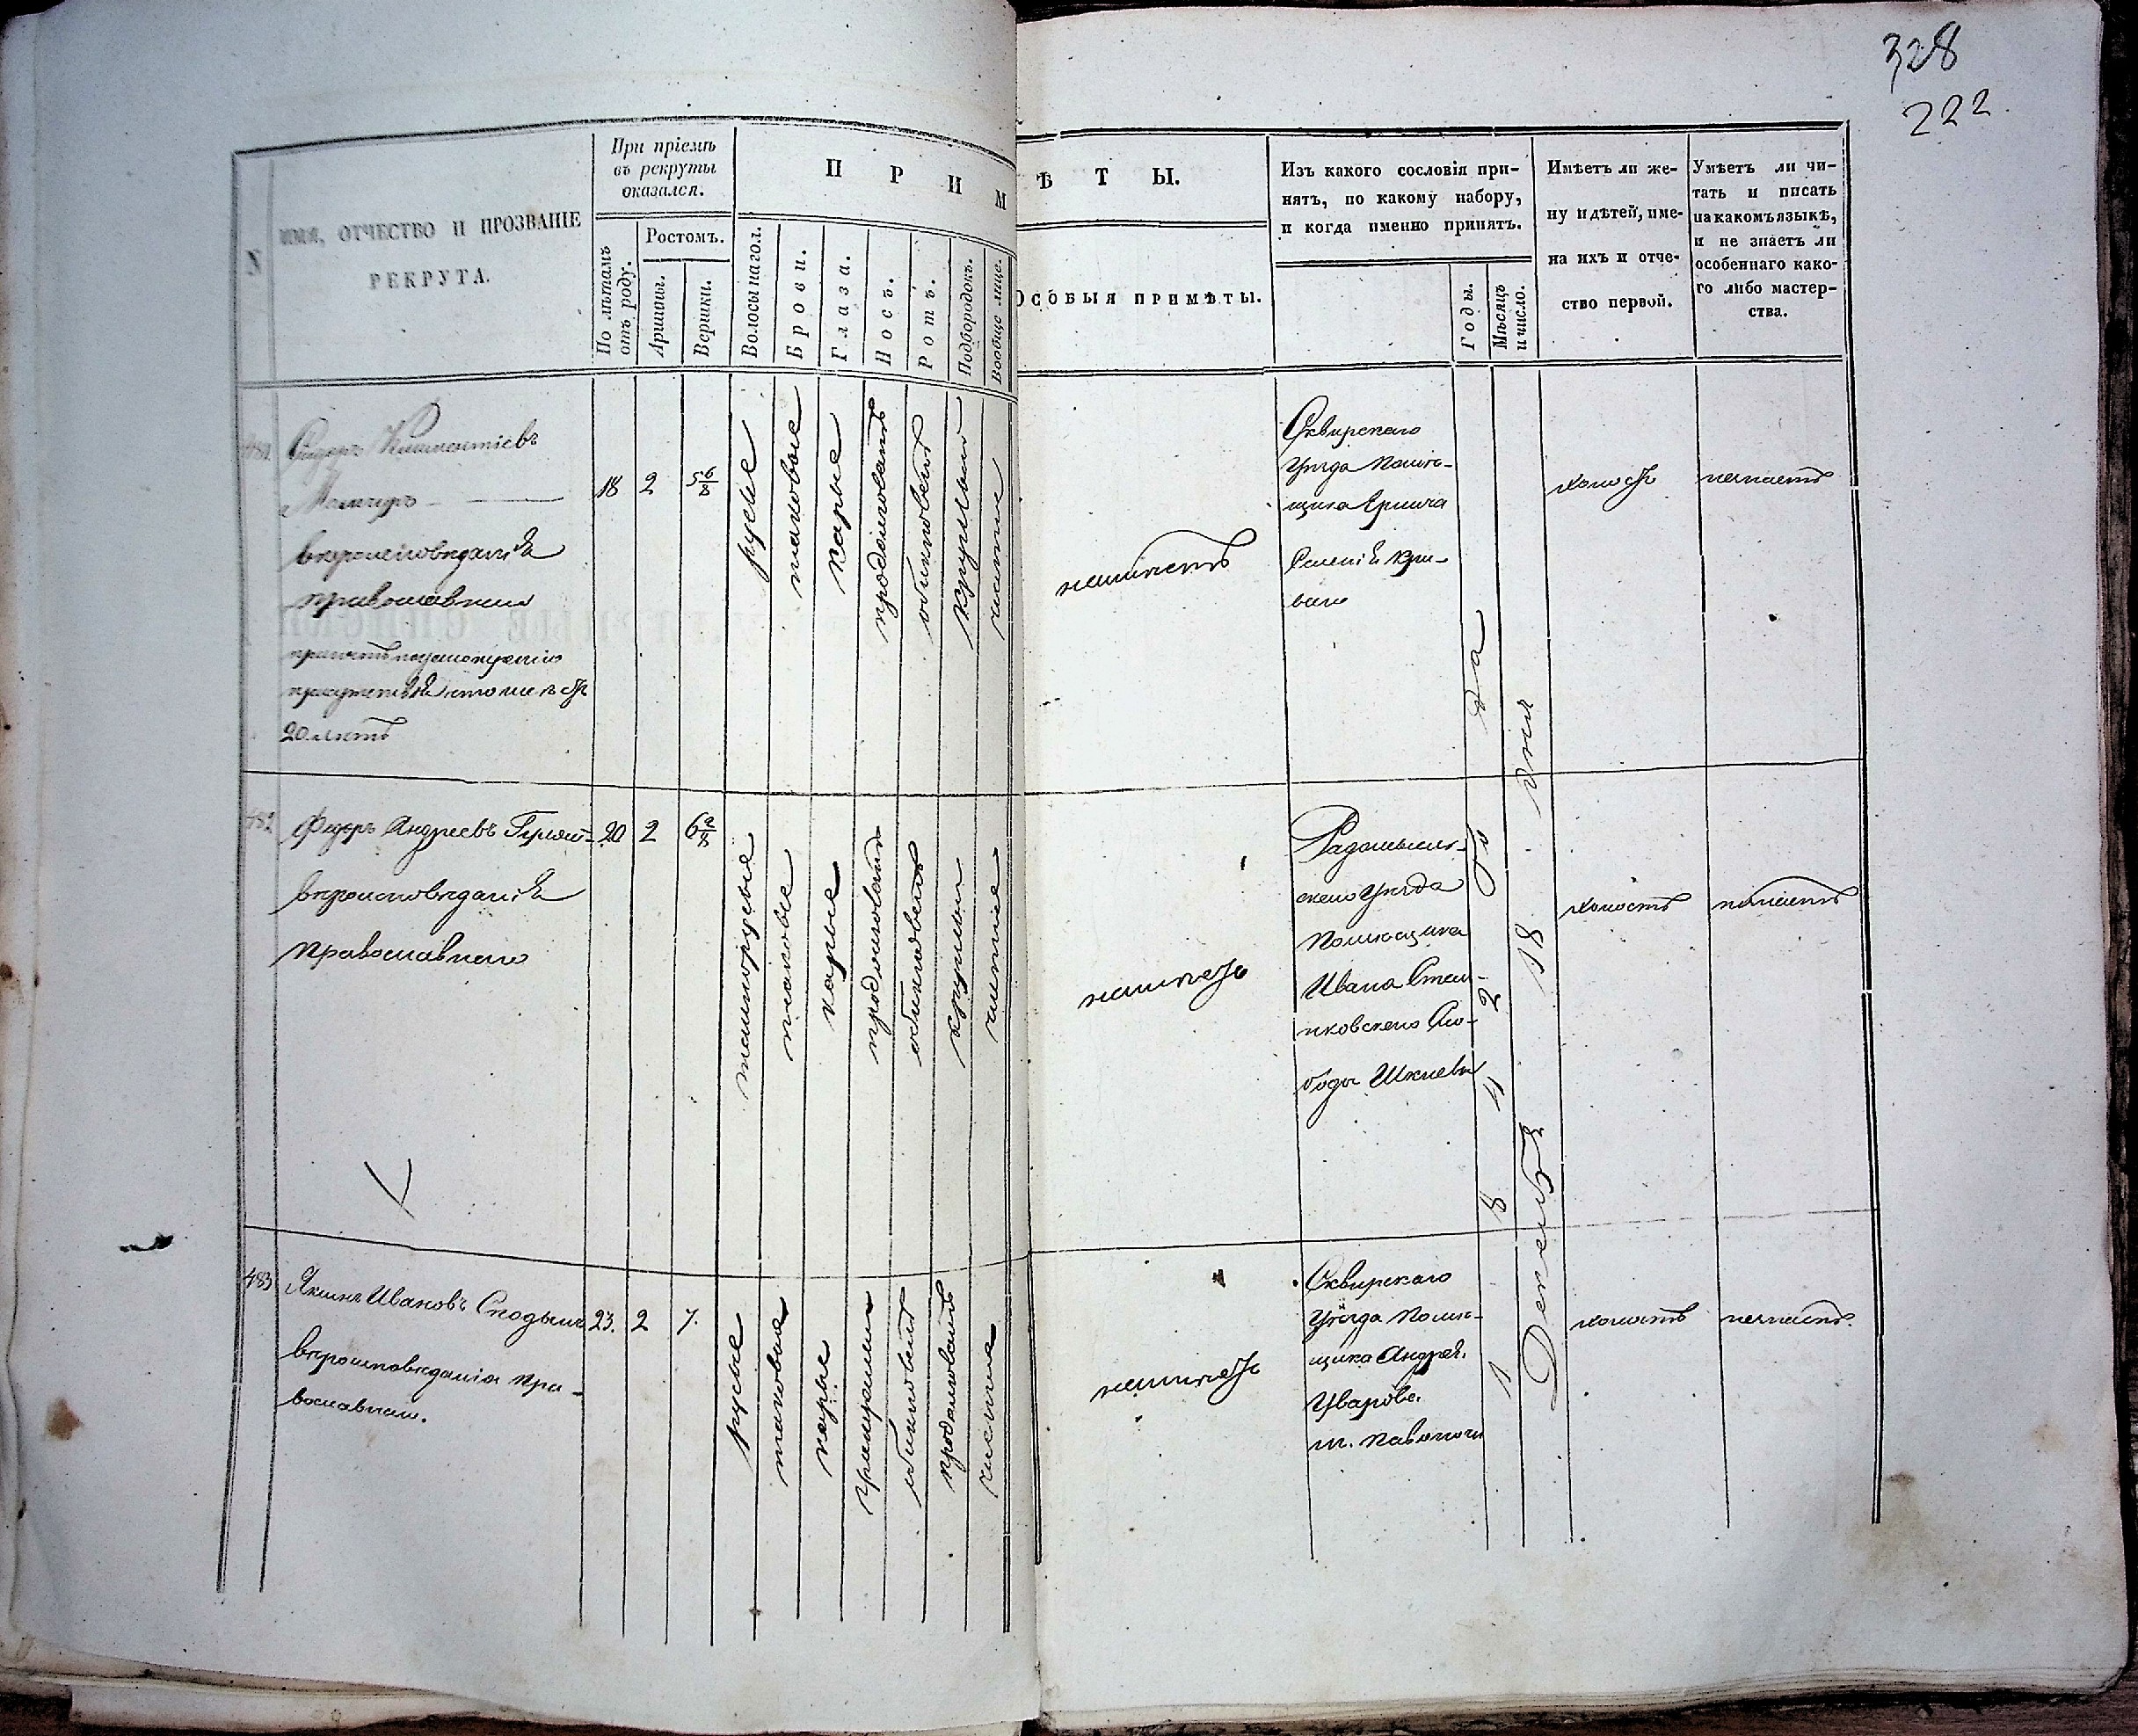 328
222.
N
ИМЯ, ОТЧЕСТВО И ПРОЗВАНІЕ
РЕКРУТА.
При пріемѣ
въ рекруты
оказался.
По лѣтамъ
отъ роду.
Ростомъ.
Аршины.
Вершки.
П Р И М
Волосы на гол.
Брови.
Глаза.
Носъ.
Ротъ.
Подбородокъ.
Вообще лице.
Ѣ Т Ы.
ОСОБЫЯ ПРИМѢТЫ.
Изъ какого сословія при-
нятъ, по какому набору,
и когда именно принятъ.
Годы.
Мѣсяцъ
и число.
Имѣетъ ли же-
ну и дѣтей, име-
на ихъ и отче-
ство первой.
Умѣетъ ли чи-
тать и писать
на какомъ языкѣ,
и не знаетъ ли
особеннаго како-
го либо мастер-
ства.
481
вѣроисповѣданія
православнаго
20 лѣтъ
18
2
5 6/8
русые
таковые
карые
продолговатъ
обыкновенъ
круглый
чистое
неимѣетъ
Сквирскаго
Уѣзда Помѣ-
щика
Селенія Кри-
ваго
холостъ
незнаетъ
482
Федоръ Андреевъ
вѣроисповѣданія
православнаго
20
2
6 2/8
темнорусые
таковые
карые
продолговатъ
обыкновенъ
круглый
чистое
неимѣетъ
Радомысль-
скаго Уѣзда
Помѣщика
Ивана Стан-
ковскаго Сло-
боды Шкневы
холостъ
незнаетъ
1842 года
Декабря 18 дня
483
Якимъ Ивановъ
вѣроисповѣданія пра-
вославнаго.
23.
2
7.
русые
таковыя
карые
умѣренный
обыкновенъ
продолговатъ
чистое
неимѣетъ
Сквирскаго
Уѣзда Помѣ-
щика Андрея
Уварова
м. Паволочи
холостъ
незнаетъ.